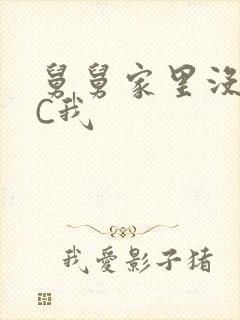 舅舅家里没
C我
我爱影子猪